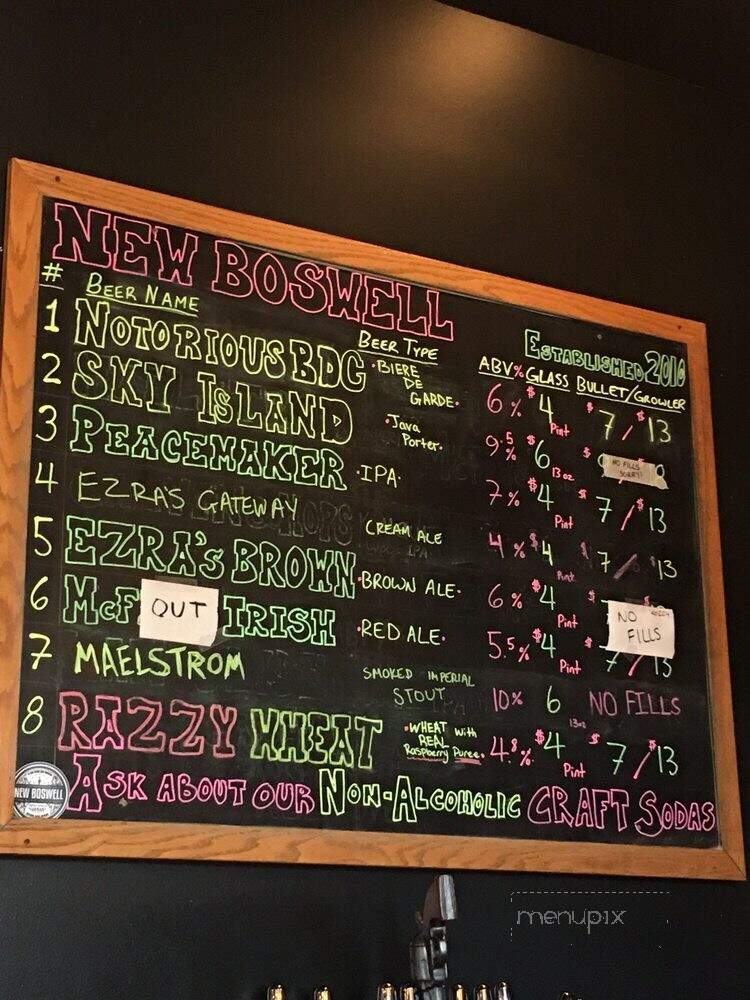 NEW BOSWELL
ESTABLISHED 2010
# BEER NAME BEER TYPE ABV% GLASS BULLET/GROWLER
1 NOTORIOUS BDG • BIERE DE GARDE • 6% $4 Pint $7/$13
2 SKY ISLAND • Java Porter • 9.5% $6 13oz $ NO FILLS SORRY!
3 PEACEMAKER • IPA • 7% $4 Pint $7/$13
4 EZRA'S GATEWAY CREAM ALE 4% $4 Pint $7/$13
5 EZRA'S BROWN • BROWN ALE • 6% $4 Pint
6 McF OUT IRISH • RED ALE • 5.5% $4 Pint 7/13 NO FILLS
7 MAELSTROM SMOKED IMPERIAL STOUT 10% 6 13oz NO FILLS
8 RAZZY WHEAT • WHEAT with REAL Raspberry Puree • 4.8% $4 Pint $7/$13
NEW BOSWELL
ASK ABOUT OUR NON-ALCOHOLIC CRAFT SODAS
menupix